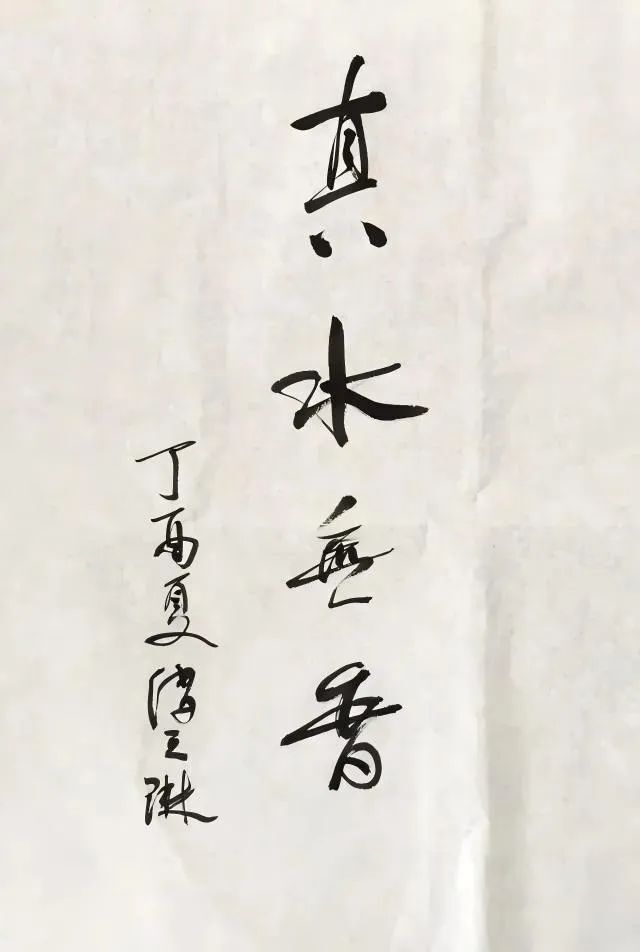 真水無香
丁酉夏琳